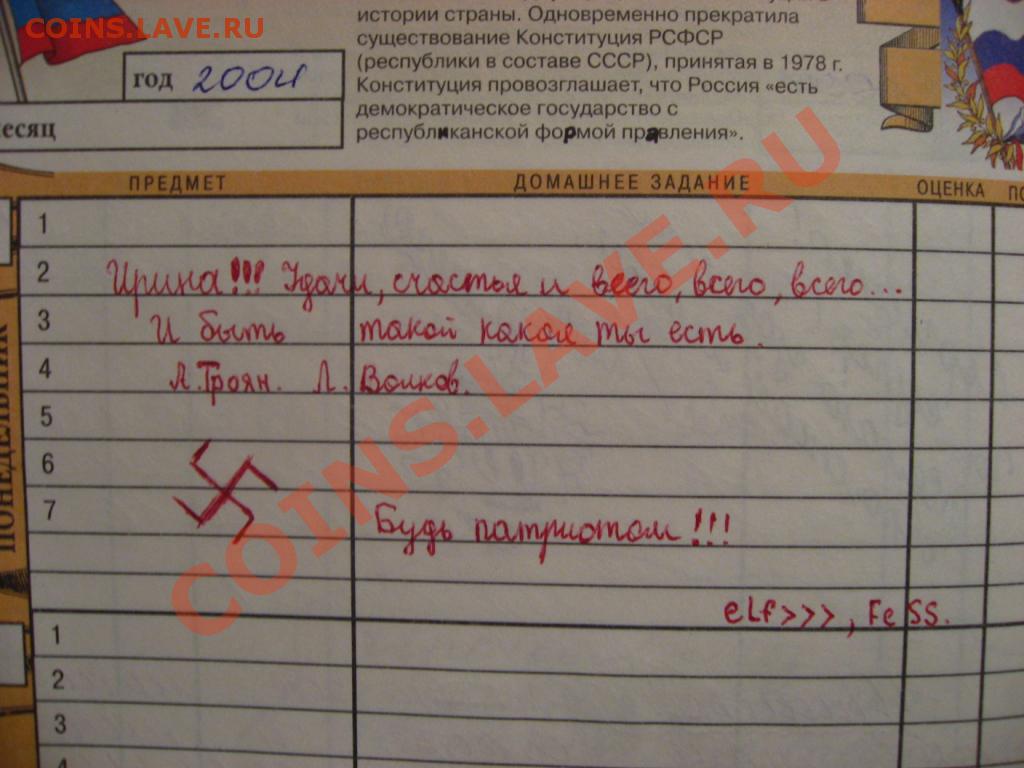 COINS.LAVE.RU
истории страны. Одновременно прекратила
существование Конституция РСФСР
(республики в составе СССР), принятая в 1978 г.
Конституция провозглашает, что Россия «есть
демократическое государство с
республиканской формой правления».
год 2004
месяц
ПРЕДМЕТ ДОМАШНЕЕ ЗАДАНИЕ ОЦЕНКА
ПОНЕДЕЛЬНИК
1
2 Ирина!!! Удачи, счастья и всего, всего, всего...
3 И быть такой какая ты есть.
4 Л.Троян. Л. Волков.
5
6
7 Будь патриотом!!!
eLf>>>, FeSS.
1
2
3
4
COINS.LAVE.RU